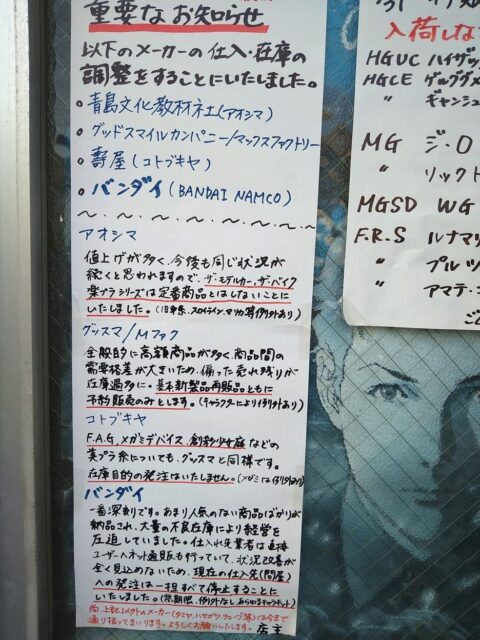 重要なお知らせ
以下のメーカーの仕入・在庫の
調整をすることにいたしました。
・青島文化教材社(アオシマ)
・グッドスマイルカンパニー/マックスファクトリー
・壽屋(コトブキヤ)
・バンダイ(BANDAI NAMCO)
アオシマ
値上げが多く、今後も同じ状況が
続くと思われますので、ザ・モデルカー、ザ・バイク
楽プラシリーズは定番商品とはしないことに
いたしました。(旧車系、スカイライン、マリカ等例外あり)
グッスマ/Mファク
全般的に高額商品が多く、商品間の
需要格差が大きいため、偏った売れ残りが
在庫過多に・基本新製品再販品ともに
予約販売のみとします。(キャラクターにより例外あり)
コトブキヤ
F.A.G、メガミデバイス、創彩少女庭などの
美プラ系についても、グッスマと同様です。
在庫目的の発注はいたしません。(メガミは例外あり)
バンダイ
一番深刻です。あまり人気のない商品ばかりが
納品され、大量の不良在庫により経営を
圧迫していました。仕入れ先業者は直接
ユーザーへネット通販も行っていて、状況改善が
全く見込めないため、現在の仕入先(問屋)
への発注は一担すべて停止することに
いたしました。
尚、上記以外のメーカー(タミヤ、ハセガワ、ウェーブ等)は今まで
通り扱ってまいります。よろしくお願いいたします。 店主
入荷しな
HGUC ハイザッ
HGCE ゲルググメ
〃 ギャンシュ
MG ジ・O
〃 リック
MGSD WG
F.R.S ルナマリ
〃 プルツ
〃 アマテ・